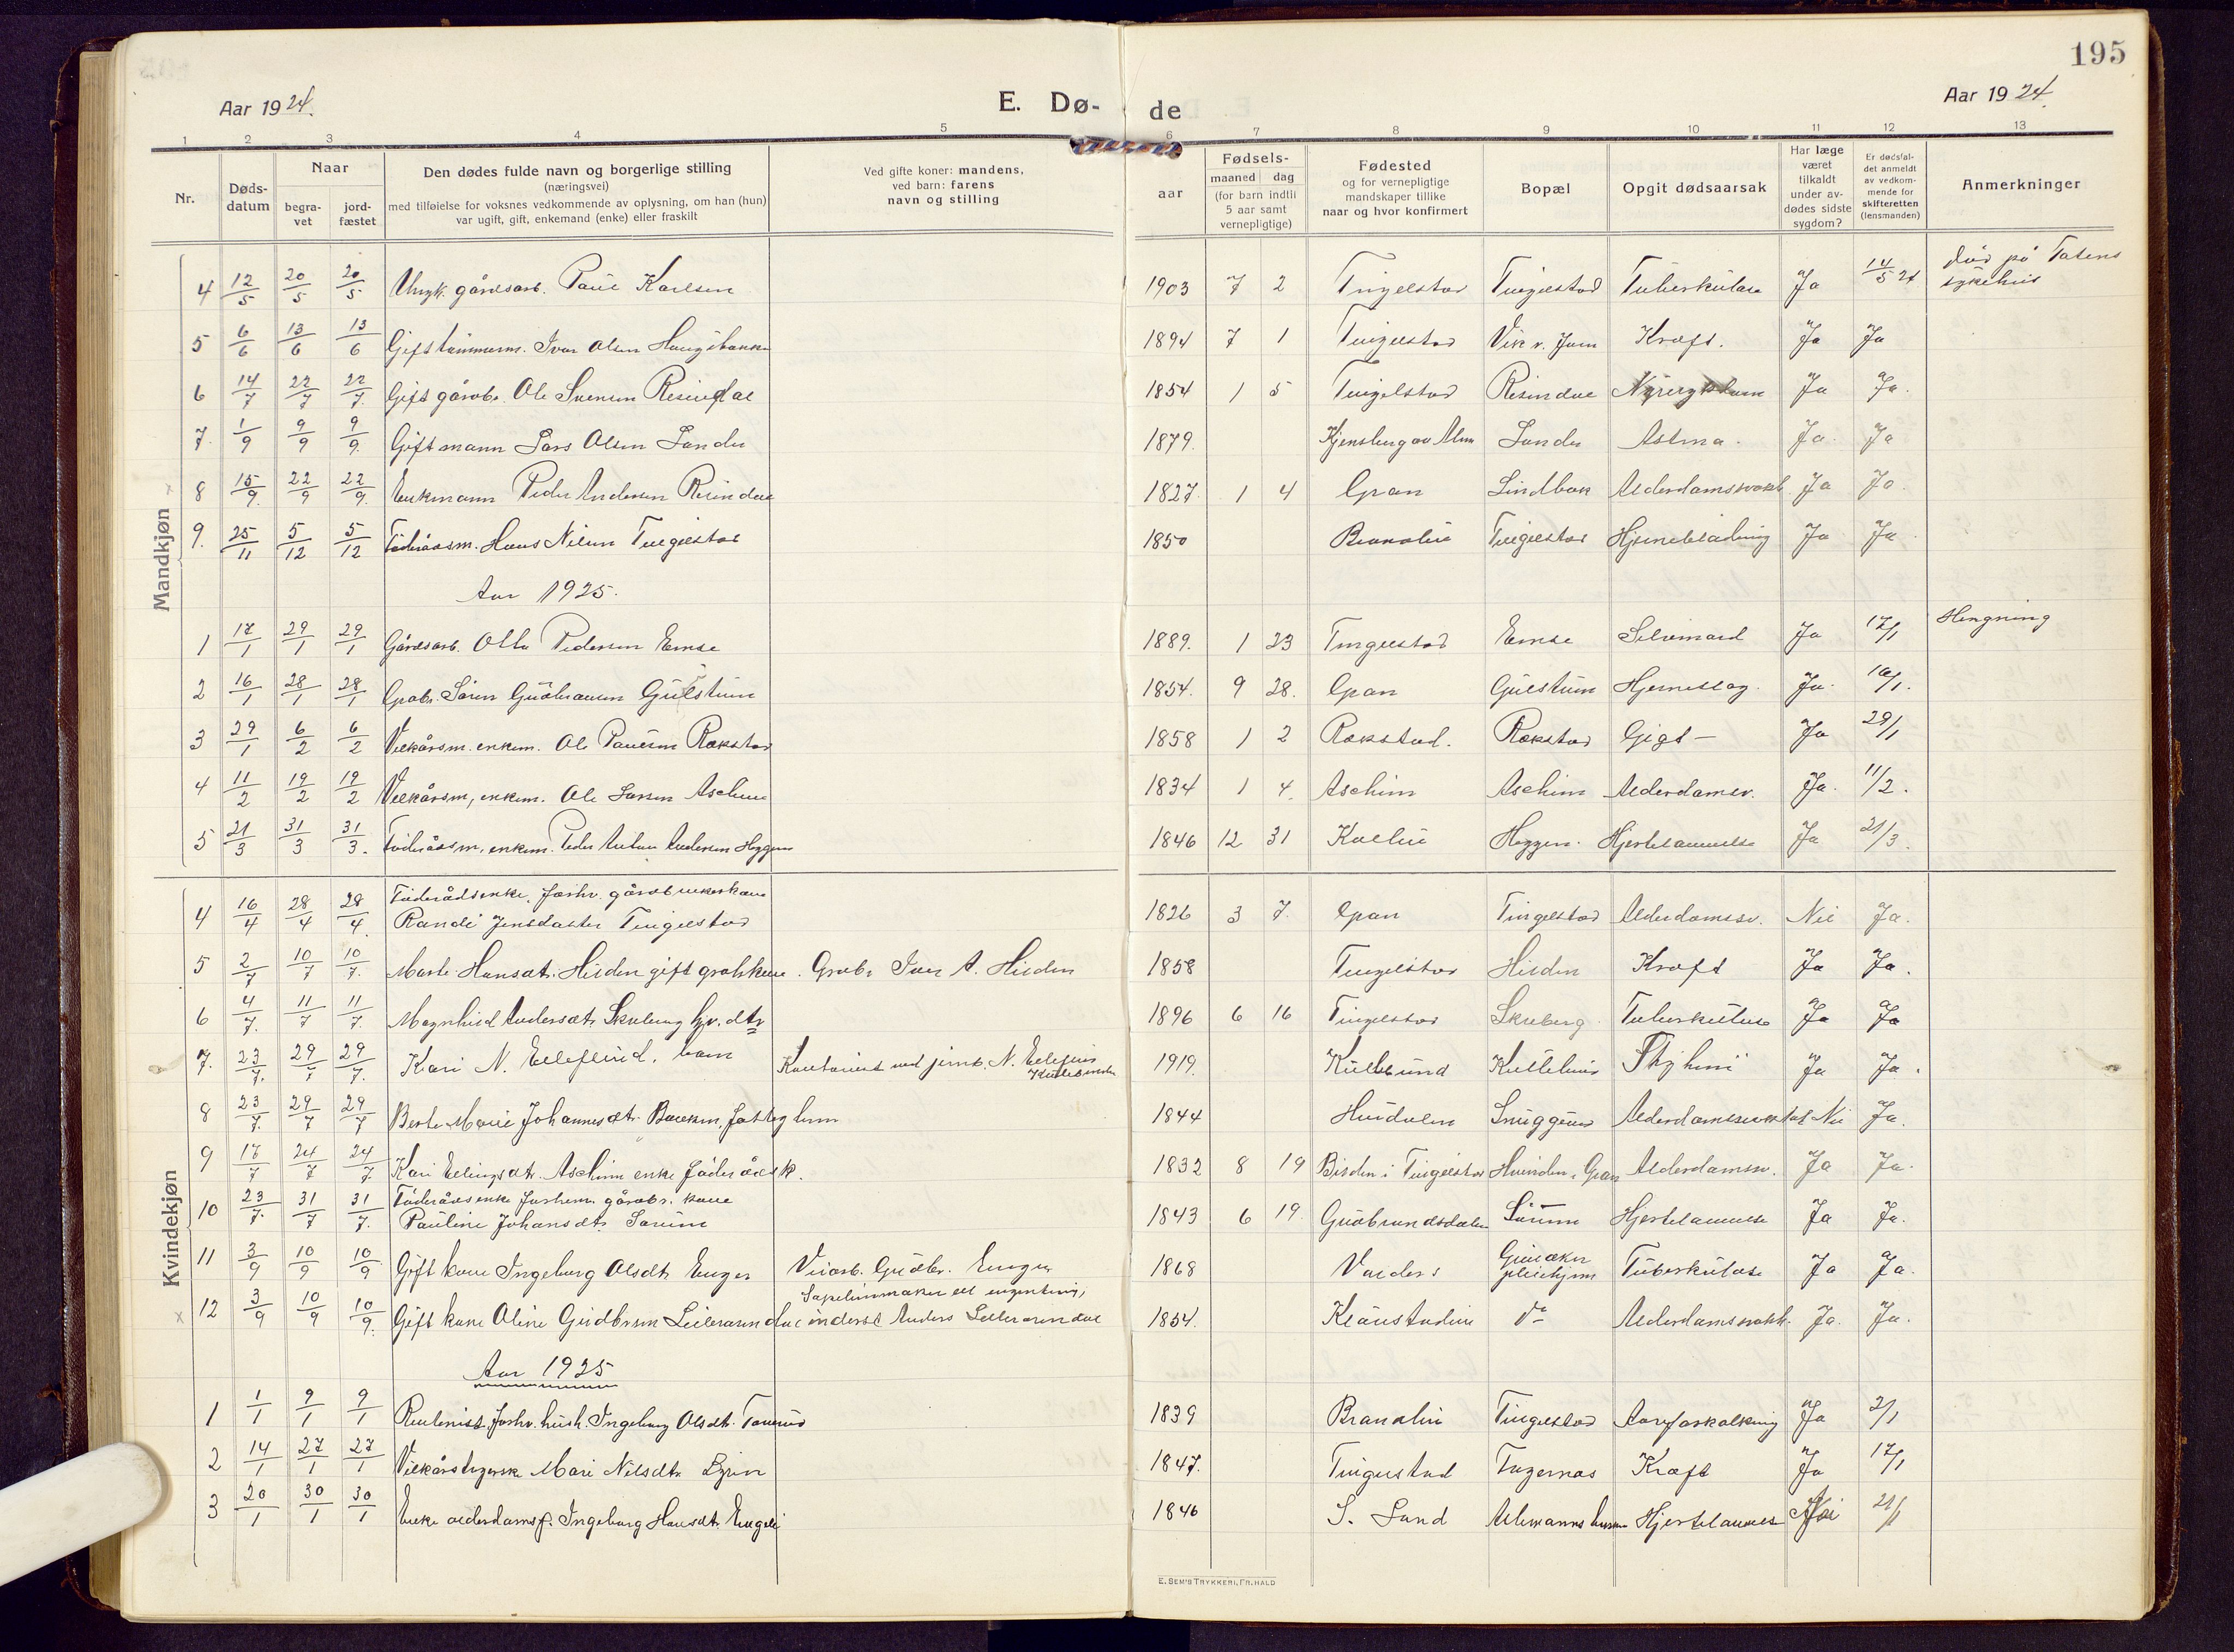 195
Aar 1924.
E. Dø-
de
Aar 1924.
1 2 3 4 5 6 7 8 9 10 11 12 13
Nr.
Døds-
datum
Naar
begra-
vet
jord-
fæstet
Den dødes fulde navn og borgerlige stilling
(næringsvei)
med tilføielse for voksnes vedkommende av oplysning, om han (hun)
var ugift, gift, enkemand (enke) eller fraskilt
Ved gifte koner: mandens,
ved barn: farens
navn og stilling
aar
Fødsels-
maaned dag
(for barn indtil
5 aar samt
vernepligtige)
Fødested
og for vernepligtige
mandskaper tillike
naar og hvor konfirmert
Bopæl
Opgit dødsaarsak
Har læge
været
tilkaldt
under av-
dødes sidste
sygdom?
Er dødsfal-
det anmeldt
av vedkom-
mende for
skifteretten
(lensmanden)
Anmerkninger
Mandkjøn
4 12/5 20/5 20/5 Ungk. gårdsarb. Paul Karlsen 1903 7 2 Tingelstad Tingelstad Tuberkulose Ja 14/5 24 død på Totens
sykehus
5 6/6 13/6 13/6 Gift tømmerm. Ivar Olsen Haugsbakken 1894 7 1 Tingelstad Vik v. Jarn Kræft. Ja Ja
6 14/7 22/7 22/7. Gift gårdbr. Ole Svensen Risindal 1854 1 5 Tingelstad Risindal Ja Ja.
7. 1/9 9/9 9/9. Gift mann Lars Olsen Sande 1879. Sande Astma. Ja. Ja
8 15/9. 22/9 22/9. Enkmann Peder Andersen Risindal 1827. 1 4 Gran Lindbak Alderdomssvakh. Ja Ja.
9. 25/11 5/12 5/12 Føderådsm. Hans Nilsen Tingelstad 1850 Brandbu Tingelstad Hjerneblødning Ja Ja
Aar 1925.
1 17/1 29/1 29/1 Gårdsarb. Otto Pedersen Emse 1889. 1 23 Tingelstad Emse Selvmord Ja 17/1 Hengning
2 16/1 28/1 28/1 Grdbr. Søren Gudbransen Gulstuen 1854. 9 28. Gran Gulstuen Hjerneslag. Ja. 16/1.
3 29/1 6/2 6/2 Vilkårsm. enkem. Ole Paulsen Rækstad 1858 1 2 Rækstad. Rækstad Gigt - Ja 29/1
4 11/2 19/2 19/2 Vilkårsm, enkem. Ole Larsen Aschim 1834 1 4. Aschim Aschim Alderdomsv. Ja. 11/2.
5 21/3 31/3 31/3. Føderådsm, enkem. Peder Anton Andersen Heggen 1846 12 31 Heggen. Hjertelammelse Ja 21/3.
Kvindekjøn
4 16/4 28/4 28/4. Føderådsenke, forhv. gårdbrukerkone
Randi Jensdatter Tingelstad 1826 3 7. Gran Tingelstad Alderdomssv. Nei Ja.
5 2/7 10/7 10/7. Marte Hansdt. Hilden gift grdbkone. Grdbr. Iver A. Hilden 1858 Tingelstad Hilden Kræft Ja Ja.
6 4/7. 11/7 11/7. Magnhild Andersdt. Skreberg hjv. dtr 1896 6 16 Tingelstad Skreberg. Tuberkulose Ja Ja
7. 23/7. 29/7 29/7. Kari N. barn Kontorist ved jernb. N. 1919. Ja Ja.
8 23/7. 29/7 29/7 Berte Marie Johannesdt. Bakken, fattiglem 1844 Hvidalen Alderdomssvakhet Nei Ja.
9 17/7 24/7 24/7. Kari Erlingsdt. Aschim enke føderådsk. 1832 8 19 i Tingelstad Gran Alderdomssv. Ja Ja.
10 23/7. 31/7 31/7. Føderådsenke forhenv. gårdbr. kone
Pauline Johansdt. Sørum 1843 6 19. Gudbrandsdalen Sørum Hjertelammelse Ja Ja.
11 3/9 10/9 10/9 Gift kone Ingeborg Olsdt. Enger Veiarb. Gudbr. Enger 1868 Valders Grinaker
pleiehjem Tuberkulose Ja Ja.
12 3/9 10/9 10/9. Gift kone Oline Gudbrsen inderst Anders 1854. do Alderdomssvakh. Ja. Ja.
Aar 1925
1 1/1 9/1 9/1 Rentenist, forhv. hush. Ingeborg Olsdt. 1839 Brandbu Tingelstad Aareforkalkning Ja 2/1
2 14/1 27/1 27/1 Vilkårstagerske Mari Nilsdt. Lyin 1847. Tingelstad Tagernas Kræft Ja 17/1
3 20/1 30/1 30/1 Enke alderdomsf. Ingeborg Hansdt. 1846 S. Land Hjertelammelse Nei 21/1
E. SEM'S TRYKKERI, FR.HALD